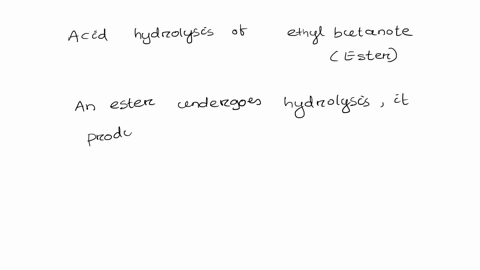 Acid hydrolysis of ethyl butanote
(Ester)
An ester undergoes hydrolysis, it
produ